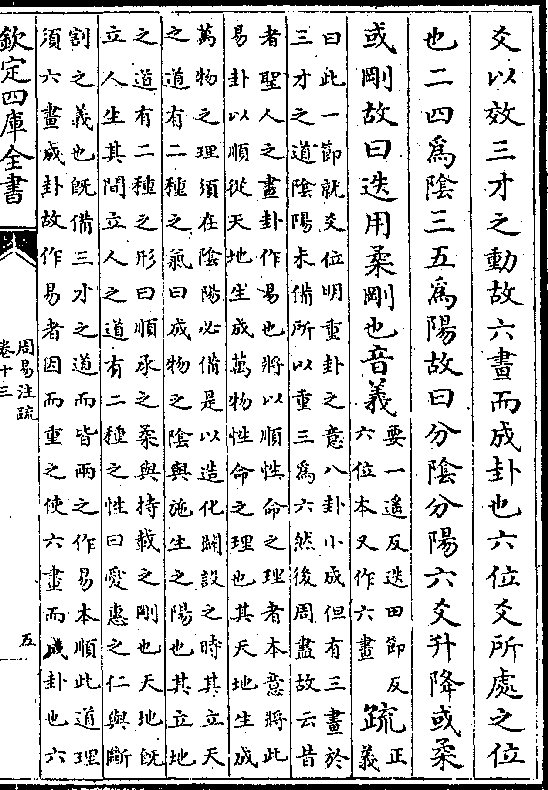 爻以效三才之動故六畫而成卦也六位爻所處之位
也二四爲陰三五爲陽故曰分陰分陽六爻升降或柔
或剛故曰迭用柔剛也音義要一遥反迭田節反六位本又作六畫疏正義
曰此一節就爻位明重卦之意八卦小成但有三畫於
三才之道陰陽未備所以重三爲六然後周盡故云昔
者聖人之畫卦作易也將以順性命之理者本意將此
易卦以順從天地生成萬物性命之理也其天地生成
萬物之理須在陰陽必備是以造化闢設之時其立天
之道有二種之氣曰成物之陰與施生之陽也其立地
之道有二種之形曰順承之柔與持載之剛也天地既
立人生其間立人之道有二種之性曰愛惠之仁與斷
割之義也既備三才之道而皆兩之作易本順此道理
須六畫成卦故作易者因而重之使六畫而成卦也六
欽定四庫全書
周易注疏
卷十三
五